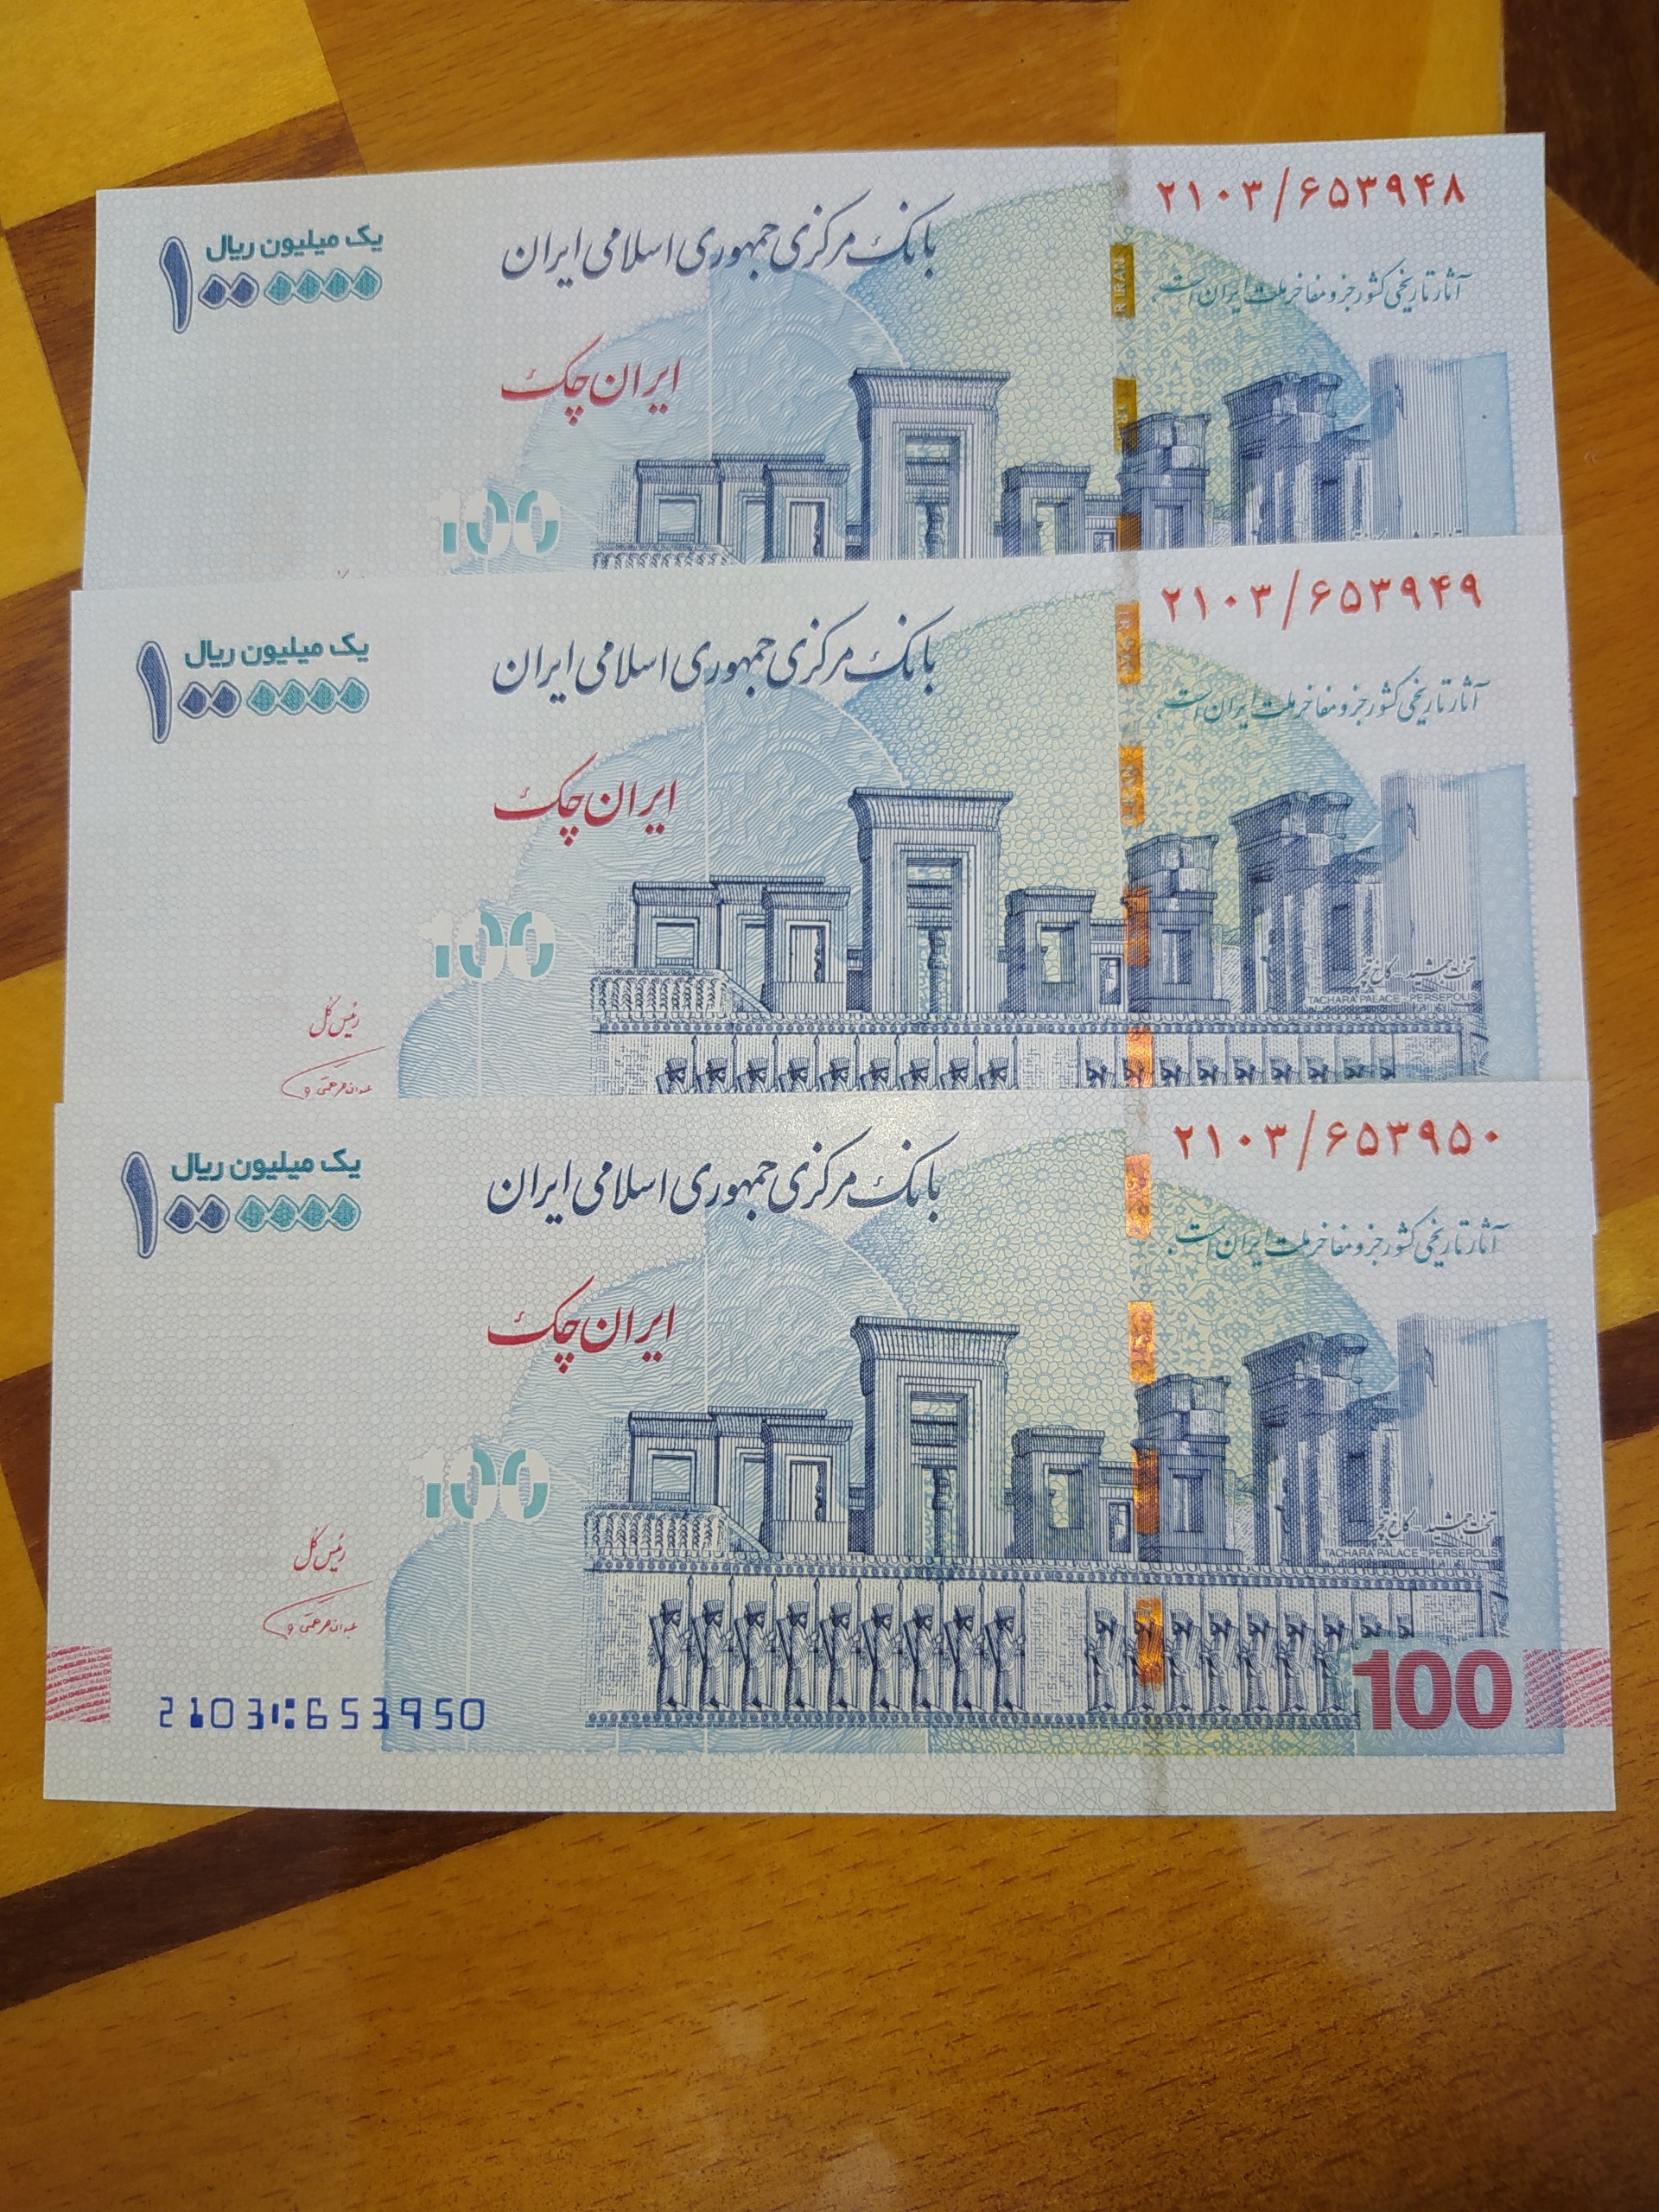 ۲۱۰۳/۶۵۳۹۴۸
یک میلیون ریال
۱۰۰۰۰۰۰
بانک مرکزی جمهوری اسلامی ایران
آثار تاریخی کشور جزو مفاخر ملت ایران است.
ایران چک
100
۲۱۰۳/۶۵۳۹۴۹
یک میلیون ریال
۱۰۰۰۰۰۰
بانک مرکزی جمهوری اسلامی ایران
آثار تاریخی کشور جزو مفاخر ملت ایران است.
ایران چک
100
تخت جمشید - کاخ تچر
TACHARA PALACE - PERSEPOLIS
رئیس کل
۲۱۰۳/۶۵۳۹۵۰
یک میلیون ریال
۱۰۰۰۰۰۰
بانک مرکزی جمهوری اسلامی ایران
آثار تاریخی کشور جزو مفاخر ملت ایران است.
ایران چک
100
تخت جمشید - کاخ تچر
TACHARA PALACE - PERSEPOLIS
رئیس کل
100
2103⑆653950